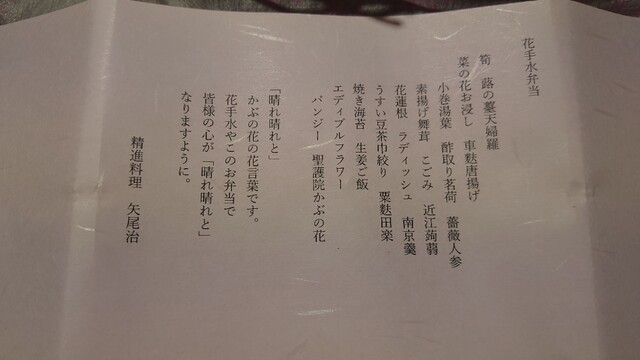 花手水弁当
筍　蕗の薹天婦羅
菜の花お浸し　車麩唐揚げ
小巻湯葉　酢取り茗荷　薔薇人参
素揚げ舞茸　こごみ　近江蒟蒻
花蓮根　ラディッシュ　南京羹
うすい豆茶巾絞り　粟麩田楽
焼き海苔　生姜ご飯
エディブルフラワー
パンジー　聖護院かぶの花
「晴れ晴れと」
かぶの花の花言葉です。
花手水やこのお弁当で
皆様の心が「晴れ晴れと」
なりますように。
精進料理　矢尾治